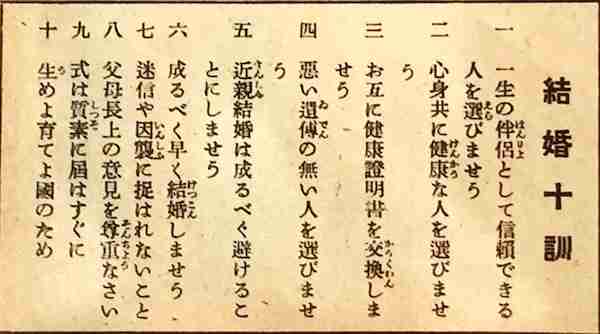 結婚十訓
一 一生の伴侶として信頼できる
人を選びませう
二 心身共に健康な人を選びませ
う
三 お互に健康證明書を交換しま
せう
四 悪い遺傳の無い人を選びませ
う
五 近親結婚は成るべく避けるこ
とにしませう
六 成るべく早く結婚しませう
七 迷信や因襲に捉はれないこと
八 父母長上の意見を尊重なさい
九 式は質素に届はすぐに
十 生めよ育てよ國のため